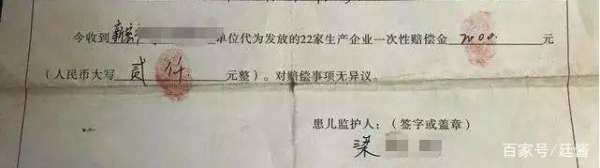 今收到 单位代为发放的22家生产企业一次性赔偿金 2000. 元
(人民币大写 贰仟 元整)。对赔偿事项无异议。
患儿监护人:(签字或盖章)
梁
百家号/廷酱